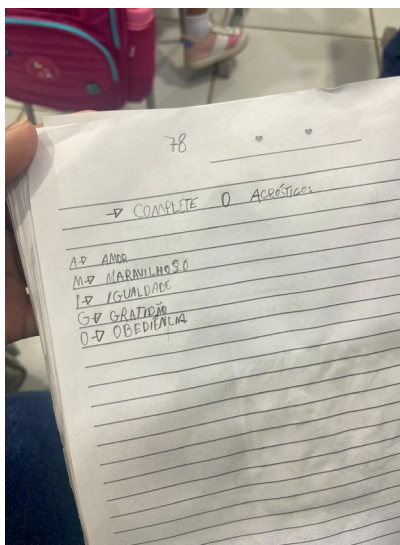 78
→ COMPLETE O ACRÓSTICO:
A→ AMOR
M→ MARAVILHOSO
I→ IGUALDADE
G→ GRATIDÃO
O→ OBEDIÊNCIA